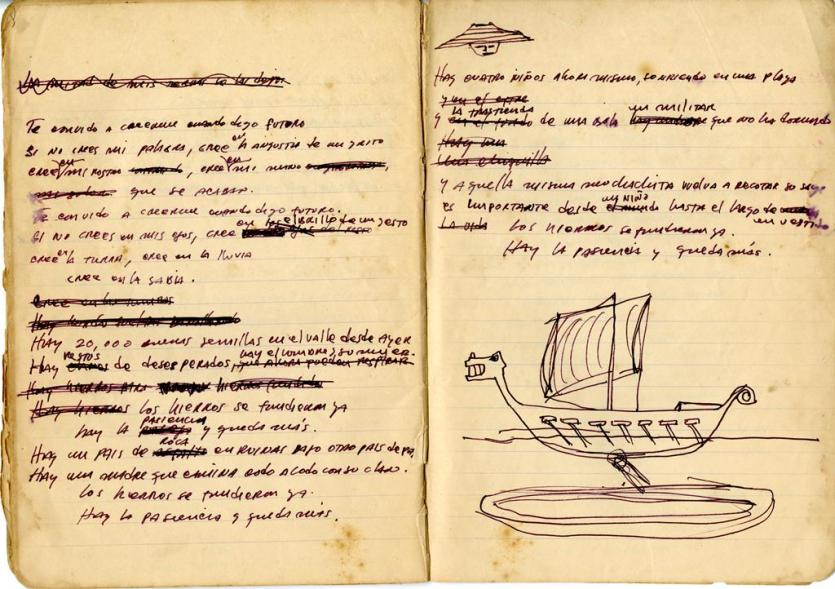 Te convido a creerme cuando digo futuro
Si no crees mi palabra, cree en la angustia de un grito
cree en mi gesto, cree en mi
que se acaban.
Te convido a creerme cuando digo futuro.
Si no crees en mis ojos, cree en el brillo de un gesto
cree en la tierra, cree en la lluvia
cree en la sabia.
Hay 20,000 semillas en el valle desde ayer
Hay restos de desesperados, hay el hombre, su mujer.
Hay hierros los hierros se fundieron ya
hay la pasiencia y queda más.
Hay un país de roca en ruinas bajo otro país de pan
Hay una madre que camina codo a codo con su clan.
Los hierros se fundieron ya.
Hay la pasiencia y queda más.
Hay cuatro niños ahora mismo, sonriendo en una playa
y la trastienda de una bala un militar que no ha dormido
Hay una
y aquella misma muchachita vuelve a recortar su saya
es importante desde un niño hasta el largo de un vestido
la vida los hierros se fundieron ya.
Hay la pasiencia y queda más.